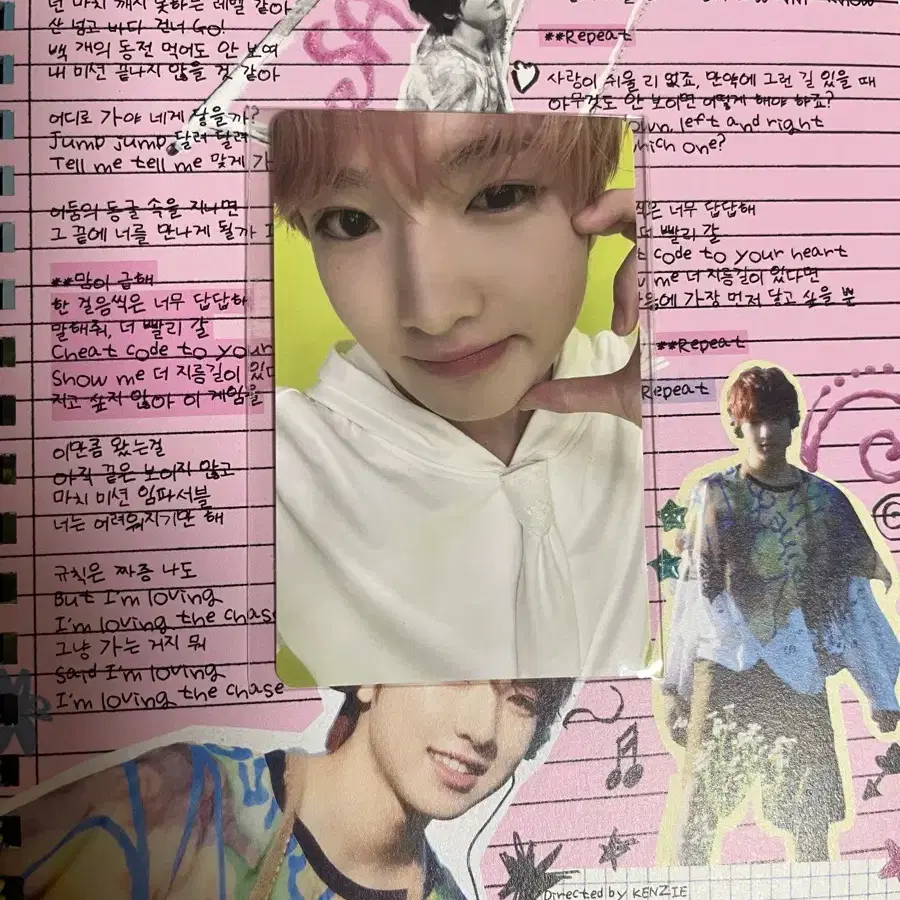 넌 마치 깨지 못하는 레벨 같아
산 넘고 바다 건너 GO!
백 개의 동전 먹어도 안 보여
내 미션 끝나지 않을 것 같아
어디로 가야 네게 닿을까?
Jump jump 달려 달려
Tell me tell me 맞게 가
어둠의 동굴 속을 지나면
그 끝에 너를 만나게 될까
**맘이 급해
한 걸음씩은 너무 답답해
말해줘, 더 빨리 갈
Cheat code to your
Show me 더 지름길이 있다
지고 싶지 않아 이 게임을
이만큼 왔는걸
아직 끝은 보이지 않고
마치 미션 임파서블
너는 어려워지기만 해
규칙은 짜증 나도
But I'm loving
I'm loving the chase
그냥 가는 거지 뭐
said I'm loving
I'm loving the chase
**Repeat
사랑이 쉬울 리 없죠, 만약에 그런 길 있을 때
아무것도 안 보이면 어떻게 해야 하죠?
own, left and right
hich one?
씩은 너무 답답해
더 빨리 갈
t code to your heart
me 더 지름길이 있다면
음에 가장 먼저 닿고 싶을 뿐
**Repeat
Repeat
Directed by KENZIE